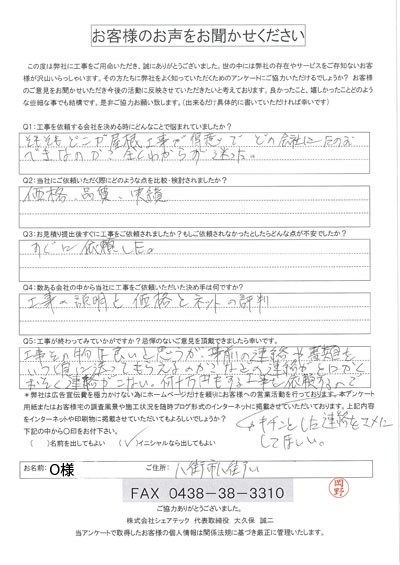 お客様のお声をお聞かせください
この度は弊社に工事をご用命いただき、誠にありがとうございました。世の中には弊社の存在やサービスをご存知ないお客
様が沢山いらっしゃいます。その方たちに弊社をよく知っていただくためのアンケートにご協力いただけるでしょうか? お客様
のご意見をお聞かせいただき今後の活動に反映させていただきたいと考えております。良かったこと、嬉しかったことどのよう
な些細な事でも結構です。是非ご協力お願い致します。(出来るだけ具体的に書いていただければ幸いです)
Q1:工事を依頼する会社を決める時にどんなことで悩まれていましたか?
そもそもどこが屋根工事で信憑で どの会社にたのむ
べきなのか?全くわからず迷った。
Q2:当社にご依頼いただく際にどのような点を比較・検討されましたか?
価格、品質、実績
Q3:お見積り提出後すぐに工事をご依頼されましたか?もしご依頼されなかったとしたらどんな点が不安でしたか?
すぐに依頼した。
Q4:数ある会社の中から当社に工事をご依頼いただいた決め手は何ですか?
工事の説明と価格とネットの評判
Q5:工事が終わってみていかがですか?忌憚のないご意見を頂戴できましたら幸いです。
工事その物は良いと思うが、事前の連絡や書類を
いつ頃に送ってもらえるのか?などの連絡がとにかく
おそく連絡がこない。何十万円もする工事を依頼するので
キチンとした連絡をマメに
してほしい。
※弊社は広告宣伝費を極力かけない為にホームページだけを頼りにお客様への営業活動を行っております。本アンケート
用紙またはお客様宅の調査風景や施工状況を随時ブログ形式のインターネットに掲載させていただいております。上記内容
をインターネットや印刷物に掲載させていただいてもよろしいでしょうか?
下記の中から〇印をお付下さい。
( )名前を出してもよい (✓)イニシャルなら出してもよい
お名前: O様 ご住所: 八街市八街い
FAX 0438-38-3310
岡野
ご協力ありがとうございました。
株式会社シェアテック 代表取締役 大久保 誠二
当アンケートで取得したお客様の個人情報は関係法規に基づき厳正に管理いたします。